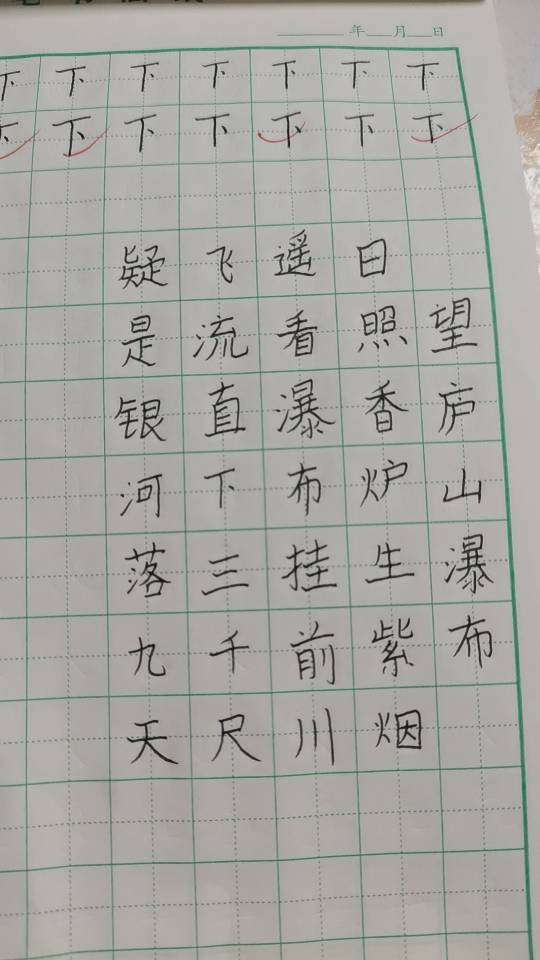 年 月 日
下 下 下 下 下 下 下
下 下 下 下 下 下 下
望庐山瀑布
日照香炉生紫烟
遥看瀑布挂前川
飞流直下三千尺
疑是银河落九天